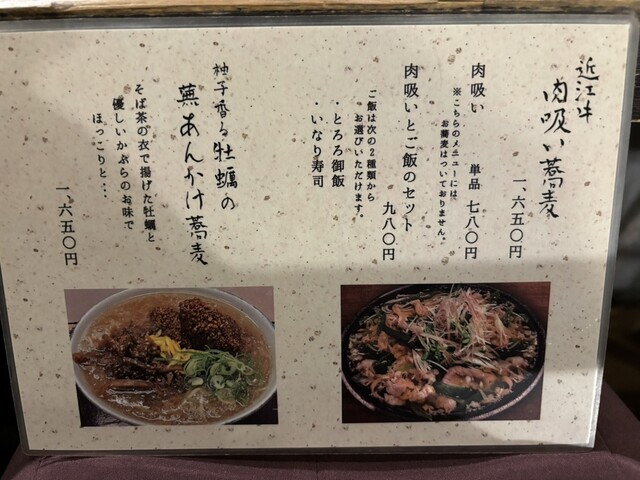 近江牛
肉吸い蕎麦
一、六五〇円
肉吸い　単品 七八〇円
※こちらのメニューには
お蕎麦はついておりません。
肉吸いとご飯のセット
九八〇円
ご飯は次の2種類から
お選びいただけます。
・とろろ御飯
・いなり寿司
柚子香る牡蠣の
蕪あんかけ蕎麦
そば茶の衣で揚げた牡蠣と
優しいかぶらのお味で
ほっこりと…
一、六五〇円